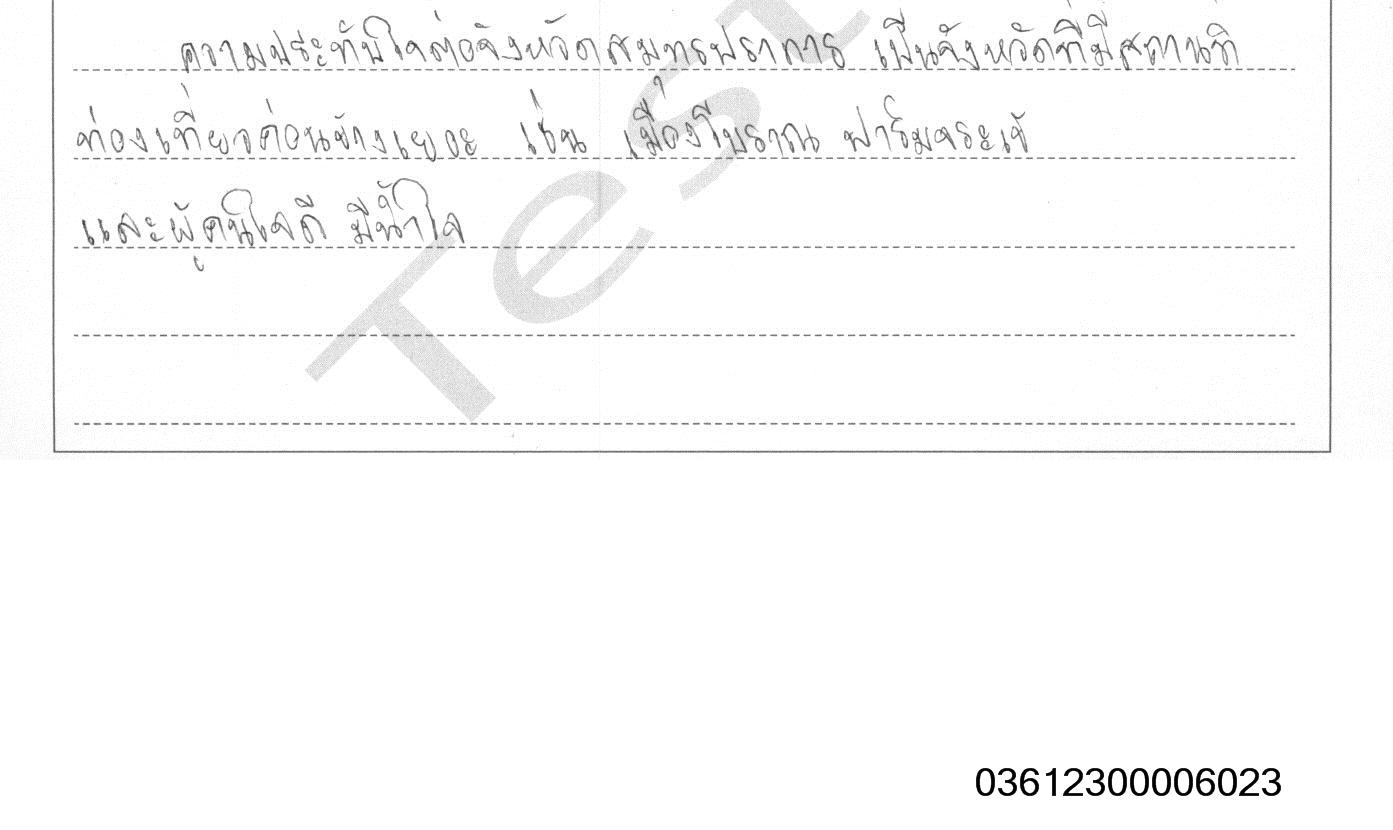 ความประทับใจต่อจังหวัดสมุทรปราการ เป็นจังหวัดที่มีสถานที่
ท่องเที่ยวค่อนข้างเยอะ เช่น เมืองโบราณ ฟาร์มจระเข้
และผู้คนใจดี มีน้ำใจ
Test
03612300006023